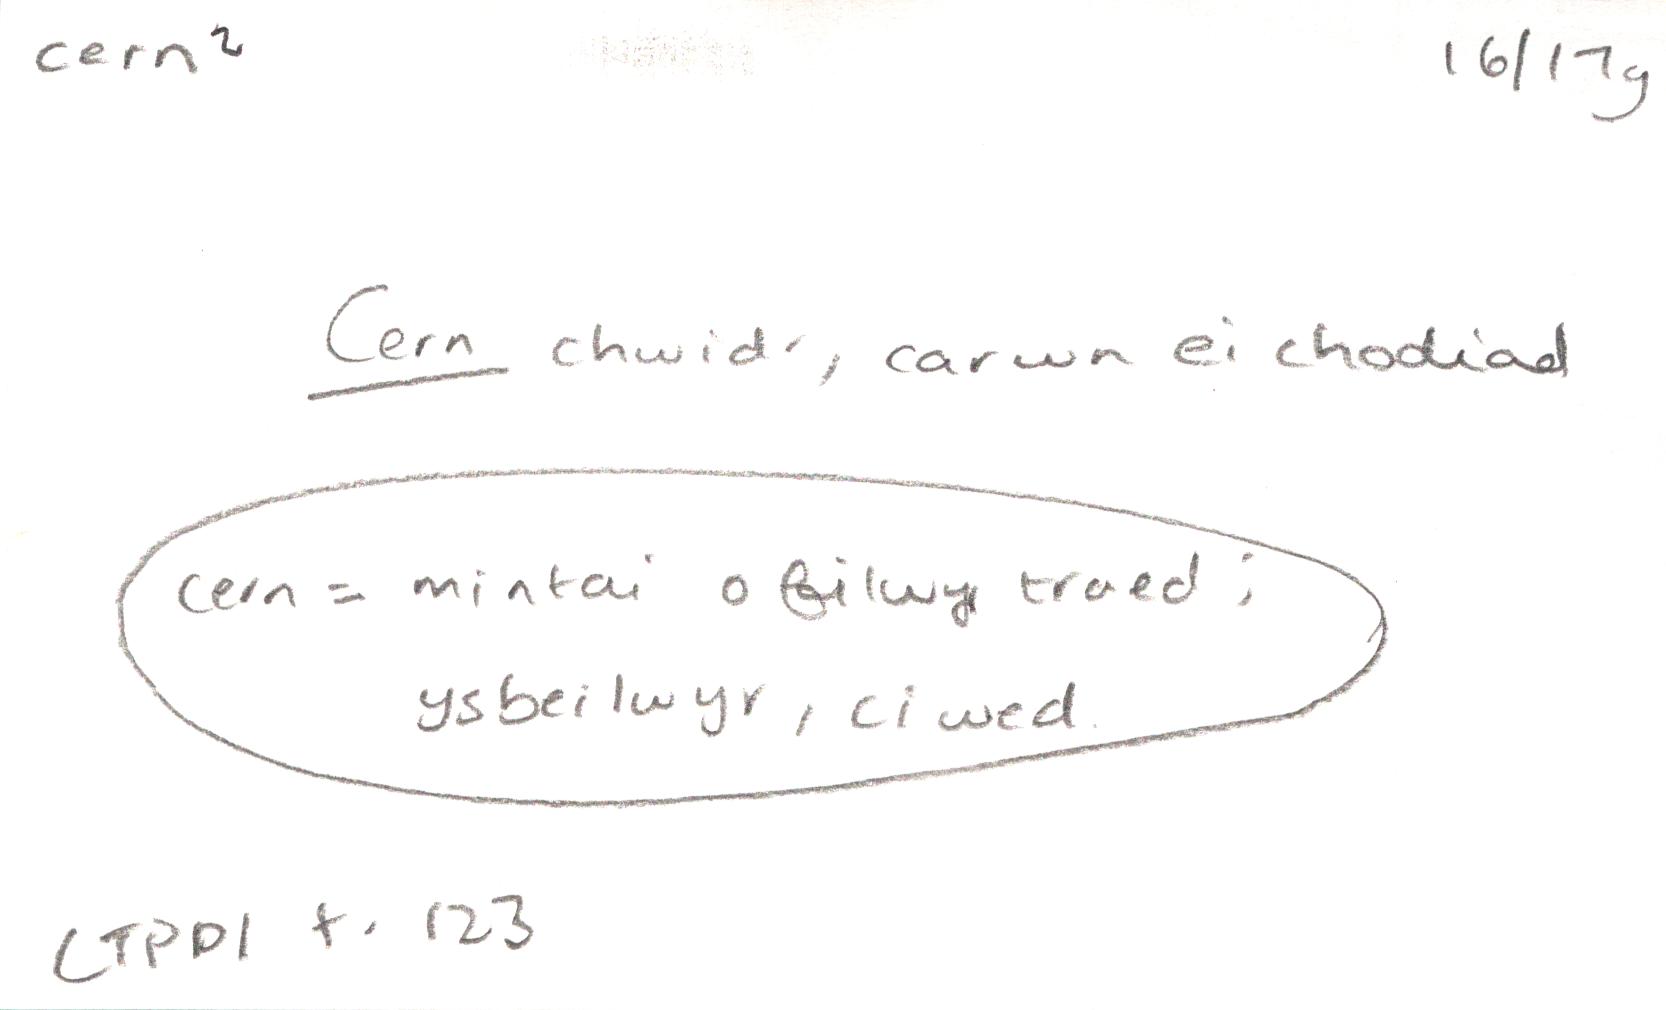 cern² 16/17g
Cern chwidr, carwn ei chodiad
cern = mintai o filwyr traed;
ysbeilwyr, ciwed.
LTPDI t. 123